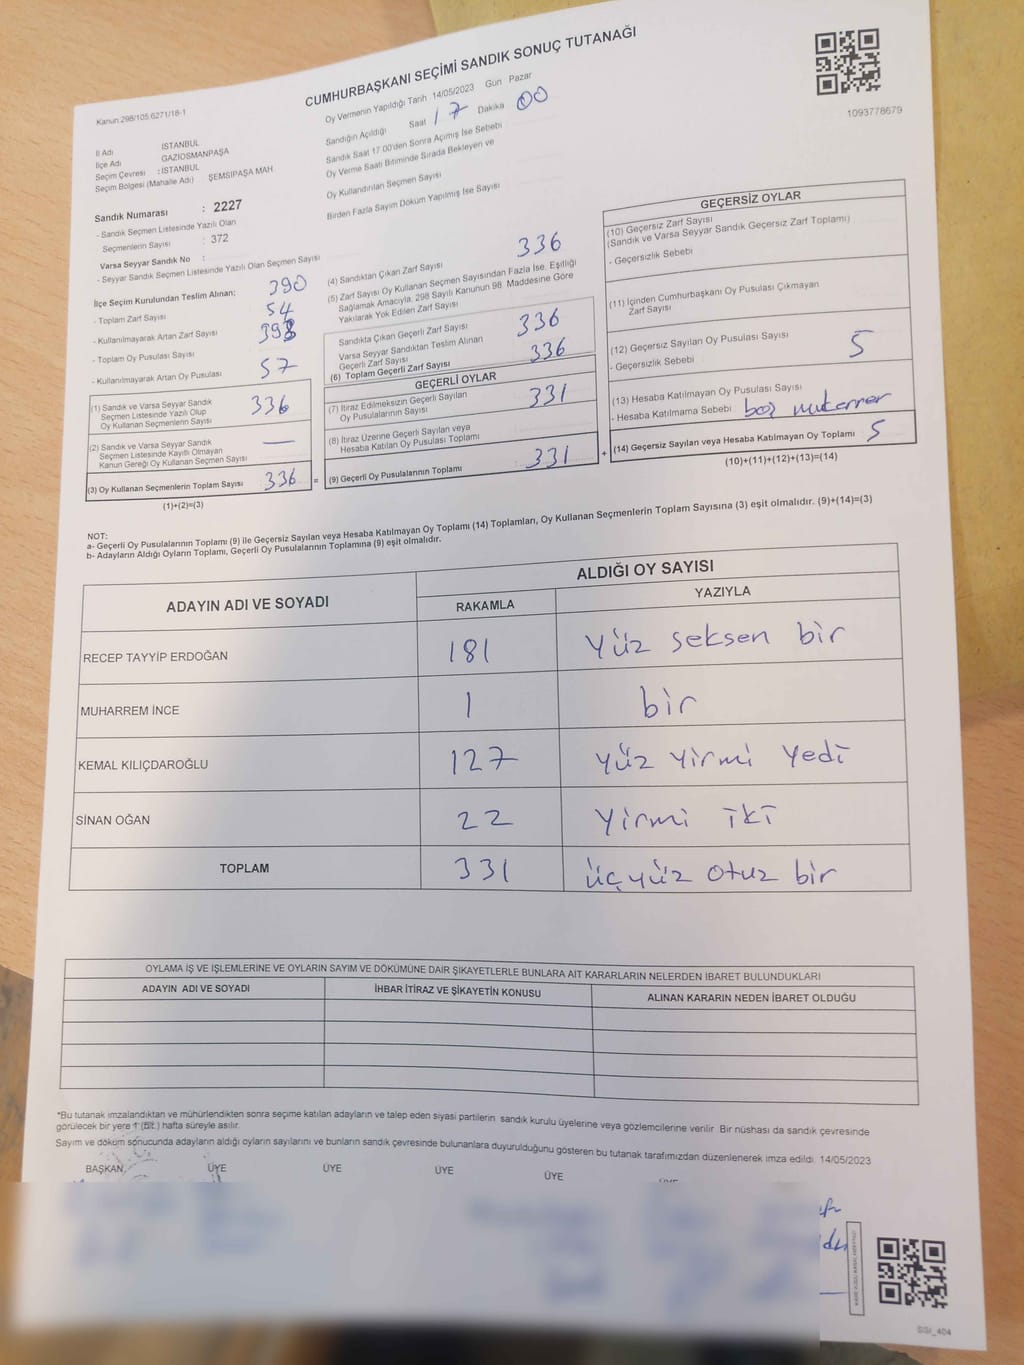 CUMHURBAŞKANI SEÇİMİ SANDIK SONUÇ TUTANAĞI
Kanun 298/105 6271/18-1
Oy Vermenin Yapıldığı Tarih 14/05/2023 Gün Pazar
1093778679
İl Adı İSTANBUL
İlçe Adı GAZİOSMANPAŞA
Seçim Çevresi : İSTANBUL
Seçim Bölgesi (Mahalle Adı) ŞEMSİPAŞA MAH
Sandığın Açıldığı Saat 17 Dakika 00
Sandık Saat 17.00'den Sonra Açımış İse Sebebi
Oy Verme Saati Bitiminde Sırada Bekleyen ve
Oy Kullandırılan Seçmen Sayısı
Birden Fazla Sayım Döküm Yapılmış İse Sayısı
Sandık Numarası : 2227
- Sandık Seçmen Listesinde Yazılı Olan
Seçmenlerin Sayısı : 372
Varsa Seyyar Sandık No :
- Seyyar Sandık Seçmen Listesinde Yazılı Olan Seçmen Sayısı
İlçe Seçim Kurulundan Teslim Alınan:
- Toplam Zarf Sayısı 390
- Kullanılmayarak Artan Zarf Sayısı 54
- Toplam Oy Pusulası Sayısı 393
- Kullanılmayarak Artan Oy Pusulası 57
(1) Sandık ve Varsa Seyyar Sandık
Seçmen Listesinde Yazılı Olup
Oy Kullanan Seçmenlerin Sayısı 336
(2) Sandık ve Varsa Seyyar Sandık
Seçmen Listesinde Kayıtlı Olmayan
Kanun Gereği Oy Kullanan Seçmen Sayısı —
(3) Oy Kullanan Seçmenlerin Toplam Sayısı 336 =
(1)+(2)=(3)
(4) Sandıktan Çıkan Zarf Sayısı 336
(5) Zarf Sayısı Oy Kullanan Seçmen Sayısından Fazla İse, Eşitliği
Sağlamak Amacıyla, 298 Sayılı Kanunun 98. Maddesine Göre
Yakılarak Yok Edilen Zarf Sayısı
Sandıkta Çıkan Geçerli Zarf Sayısı 336
Varsa Seyyar Sandıktan Teslim Alınan
Geçerli Zarf Sayısı
(6) Toplam Geçerli Zarf Sayısı 336
GEÇERLİ OYLAR
(7) İtiraz Edilmeksizin Geçerli Sayılan
Oy Pusulalarının Sayısı 331
(8) İtiraz Üzerine Geçerli Sayılan veya
Hesaba Katılan Oy Pusulası Toplamı
(9) Geçerli Oy Pusulalarının Toplamı 331 +
GEÇERSİZ OYLAR
(10) Geçersiz Zarf Sayısı
(Sandık ve Varsa Seyyar Sandık Geçersiz Zarf Toplamı)
- Geçersizlik Sebebi
(11) İçinden Cumhurbaşkanı Oy Pusulası Çıkmayan
Zarf Sayısı
(12) Geçersiz Sayılan Oy Pusulası Sayısı 5
- Geçersizlik Sebebi
(13) Hesaba Katılmayan Oy Pusulası Sayısı
- Hesaba Katılmama Sebebi boş mükerrer
(14) Geçersiz Sayılan veya Hesaba Katılmayan Oy Toplamı 5
(10)+(11)+(12)+(13)=(14)
NOT:
a- Geçerli Oy Pusulalarının Toplamı (9) ile Geçersiz Sayılan veya Hesaba Katılmayan Oy Toplamı (14) Toplamları, Oy Kullanan Seçmenlerin Toplam Sayısına (3) eşit olmalıdır. (9)+(14)=(3)
b- Adayların Aldığı Oyların Toplamı, Geçerli Oy Pusulalarının Toplamına (9) eşit olmalıdır.
ADAYIN ADI VE SOYADI ALDIĞI OY SAYISI
RAKAMLA YAZIYLA
RECEP TAYYİP ERDOĞAN 181 Yüz seksen bir
MUHARREM İNCE 1 bir
KEMAL KILIÇDAROĞLU 127 Yüz Yirmi Yedi
SİNAN OĞAN 22 Yirmi iki
TOPLAM 331 üçyüz otuz bir
OYLAMA İŞ VE İŞLEMLERİNE VE OYLARIN SAYIM VE DÖKÜMÜNE DAİR ŞİKAYETLERLE BUNLARA AİT KARARLARIN NELERDEN İBARET BULUNDUKLARI
ADAYIN ADI VE SOYADI İHBAR İTİRAZ VE ŞİKAYETİN KONUSU ALINAN KARARIN NEDEN İBARET OLDUĞU
*Bu tutanak imzalandıktan ve mühürlendikten sonra seçime katılan adayların ve talep eden siyasi partilerin sandık kurulu üyelerine veya gözlemcilerine verilir. Bir nüshası da sandık çevresinde
görülecek bir yere 1 (Bir.) hafta süreyle asılır.
Sayım ve döküm sonucunda adayların aldığı oyların sayılarını ve bunların sandık çevresinde bulunanlara duyurulduğunu gösteren bu tutanak tarafımızdan düzenlenerek imza edildi. 14/05/2023
BAŞKAN ÜYE ÜYE ÜYE ÜYE
SGI_404